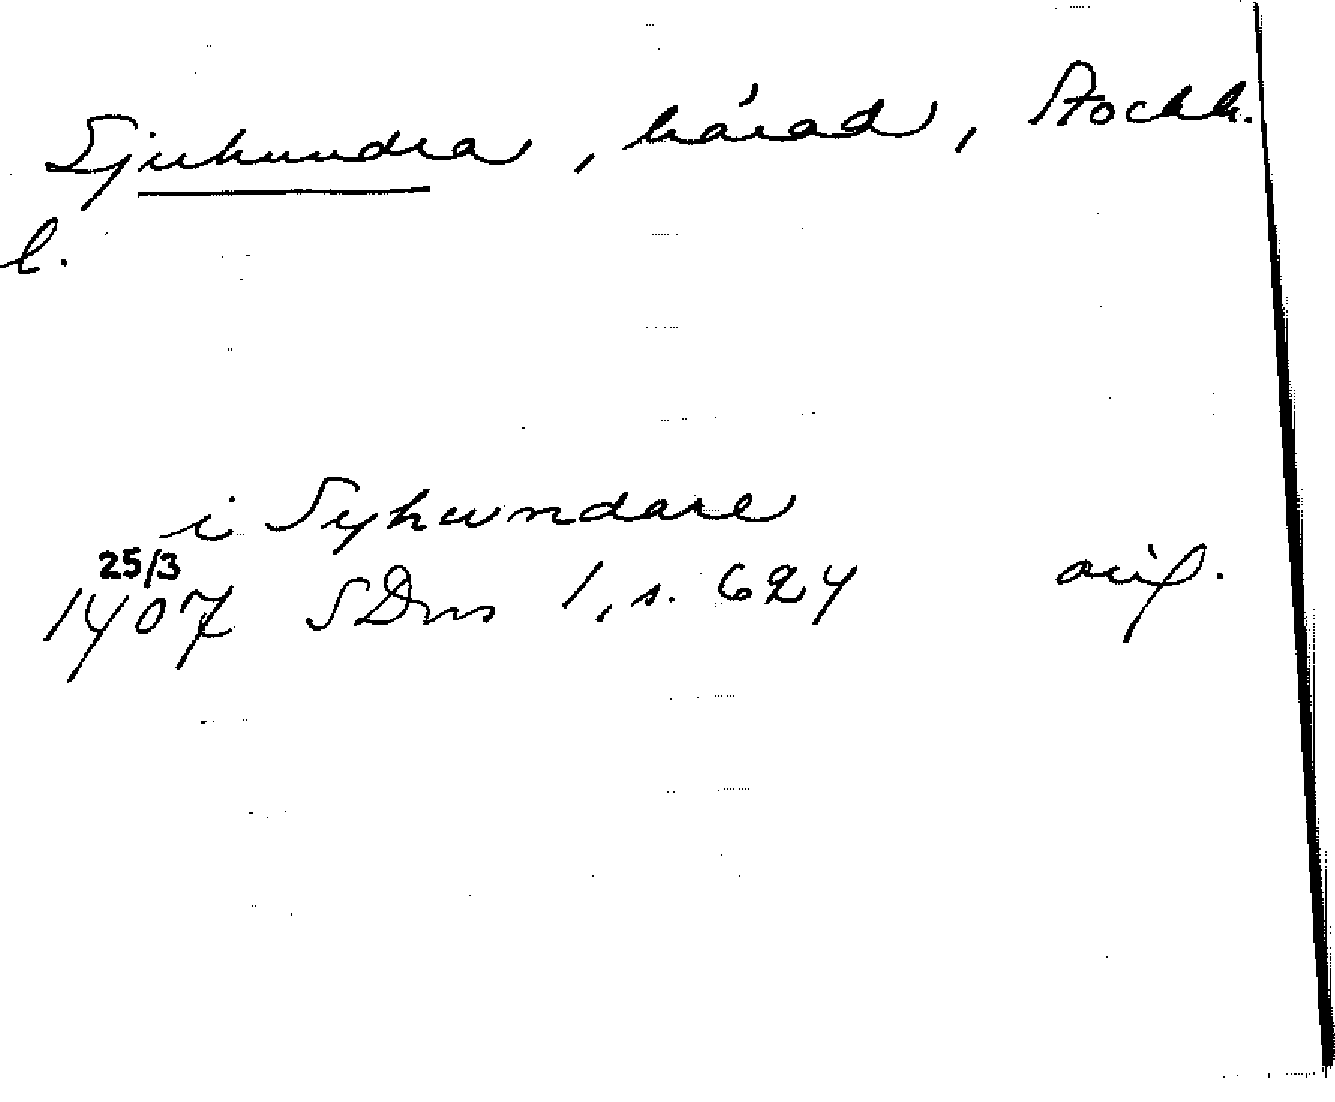 Sjuhundra, härad, Stockh.
l.
i Syhwndare
25/3
1407 SDns 1, s. 624 avs.